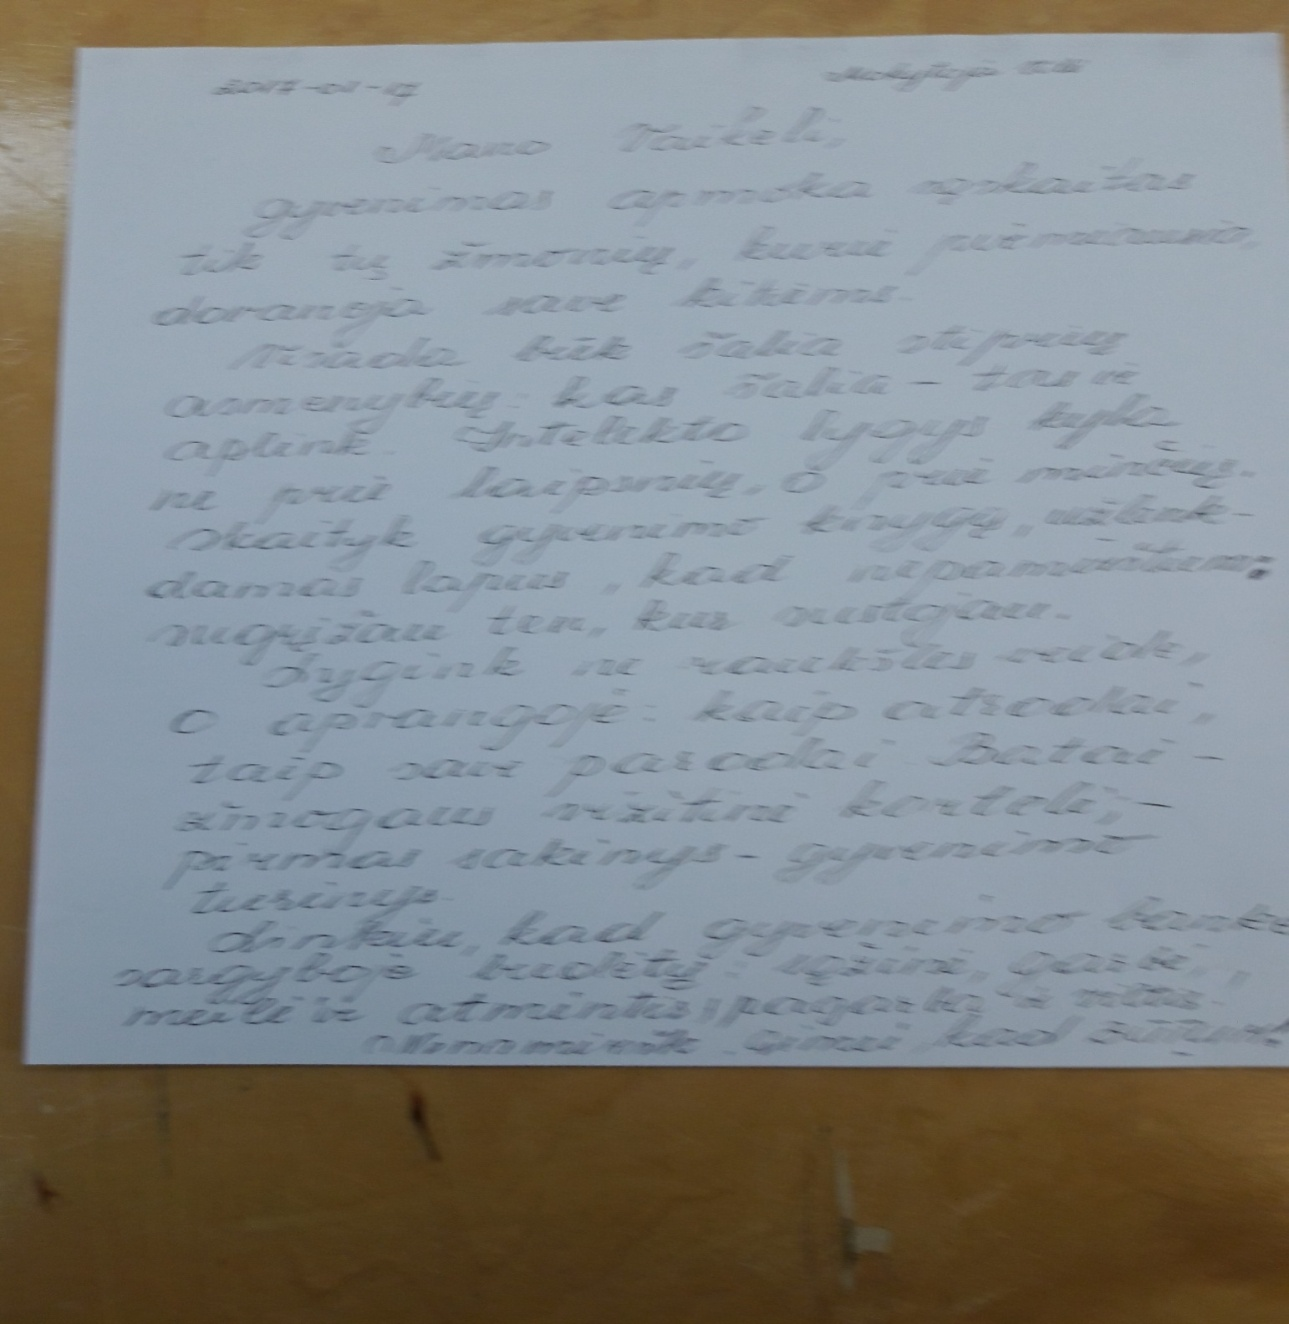 2017-01-17
Mokytoja
Mano Vaikeli,
gyvenimas apmoka sąskaitas
tik tų žmonių, kurie pirmiausia,
dovanoja save kitiems.
Visada būk šalia stiprių
asmenybių: kas šalia – tas ir
aplink. Intelekto lygys kyla
ne prie laipsnių, o prie minčių.
Skaityk gyvenimo knygą, užlenk-
damas lapus, kad nepamirštum:
sugrįžau ten, kur sustojau.
Lygink ne raukšles veide,
o aprangoje: kaip atrodai,
taip save parodai. Batai –
žmogaus vizitinė kortelė, –
pirmas sakinys – gyvenimo
turinys.
Linkiu, kad gyvenimo banke
sargyboje budėtų: sąžinė, garbė,
meilė ir atmintis, pagarba ir viltis.
Nenumirk Gimei, kad žiūrėtum!